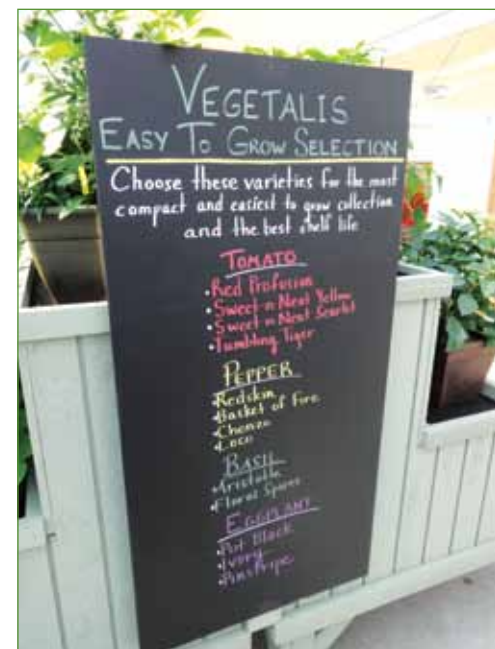 VEGETALIS
EASY TO GROW SELECTION
Choose these varieties for the most
compact and easiest to grow collection
and the best shelf life
TOMATO
•Red Profusion
•Sweet-n-Neat Yellow
•Sweet-n-Neat Scarlet
•Tumbling Tiger
PEPPER
•Redskin
•Basket of Fire
•Chenzo
•Loco
BASIL
•Aristotle
•Floral Spires
EGGPLANT
•Pot Black
•Ivory
•Pinstripe